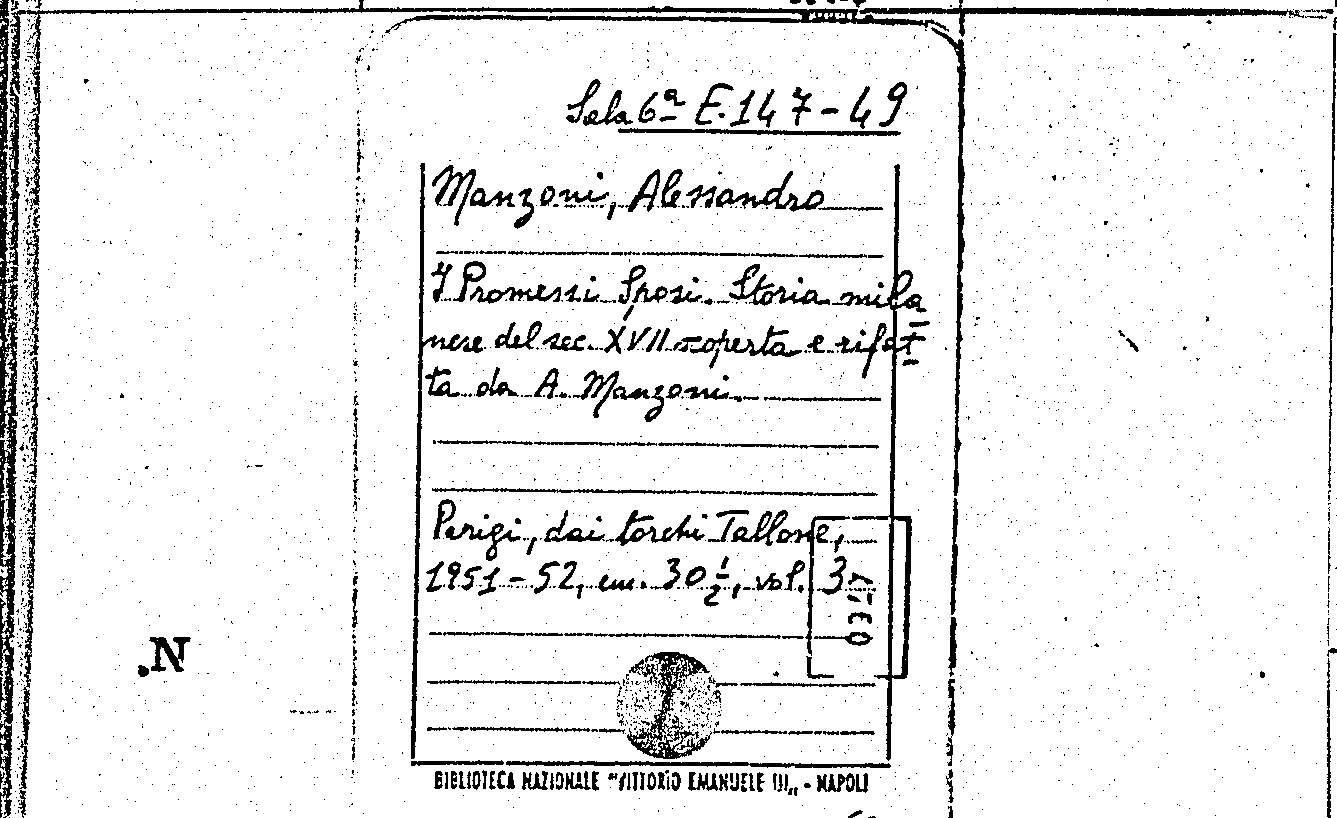 Sala 6ª E.147-49
Manzoni, Alessandro
I Promessi Sposi. Storia mila
nese del sec. XVII scoperta e rifat
ta da A. Manzoni.
Parigi, dai torchi Tallone,
1951-52, cm. 30 ½, vol. 3
N.
BIBLIOTECA NAZIONALE "VITTORIO EMANUELE III" - NAPOLI